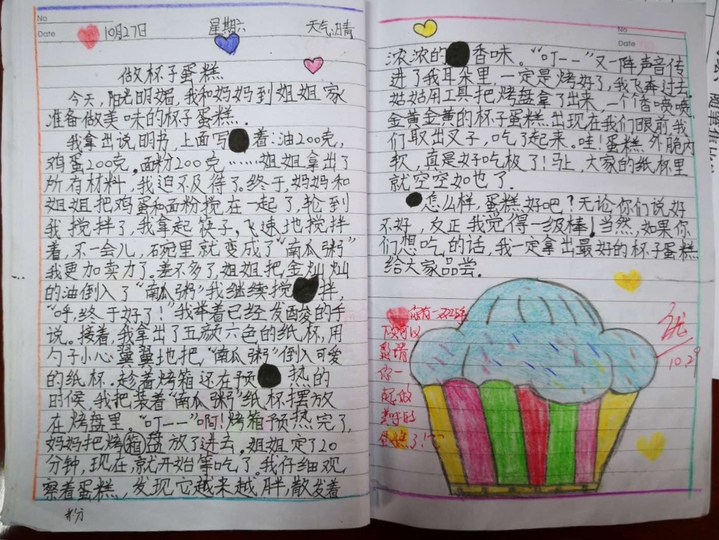 No
Date
10月27日 星期六 天气:晴
做杯子蛋糕
今天,阳光明媚,我和妈妈到姐姐家
准备做美味的杯子蛋糕.
我拿出说明书,上面写着:油200克,
鸡蛋200克,面粉200克……姐姐拿出了
所有材料,我迫不及待了。终于,妈妈和
姐姐把鸡蛋和面粉搅在一起了,轮到
我搅拌了,我拿起筷子,飞速地搅拌
着,不一会儿,碗里就变成了“南瓜粥”
我更加卖力了.差不多了,姐姐把金灿灿
的油倒入了“南瓜粥”我继续搅拌,
“呼,终于好了!”我举着已经发酸的手
说。接着,我拿出了五颜六色的纸杯,用
勺子小心翼翼地把,“南瓜粥”倒入可爱
的纸杯.趁着烤箱还在预热的
时候,我把装着“南瓜粥”纸杯摆放
在烤盘里。“叮一一”啊!烤箱预热完了,
妈妈把烤箱盘放了进去,姐姐定了20
分钟,现在,就开始等吃了,我仔细观
察着蛋糕,发现它越来越“胖,散发着
No
Date
浓浓的香味。“叮一一”又一阵声音传
进了我耳朵里,一定是烤好了,我飞奔过去.
姑姑用工具把烤盘拿了出来,一个香喷喷,
金黄金黄的杯子蛋糕.出现在我们眼前,我
们取出叉子,吃了起来。哇!蛋糕外脆内
软,真是好吃极了!马上,大家的纸杯里
就空空如也了.
怎么样,蛋糕好吧?无论你们说好
不好,反正我觉得一级棒!当然,如果你
们想吃的话,我一定拿出最好的杯子蛋糕
给大家品尝.
10.29